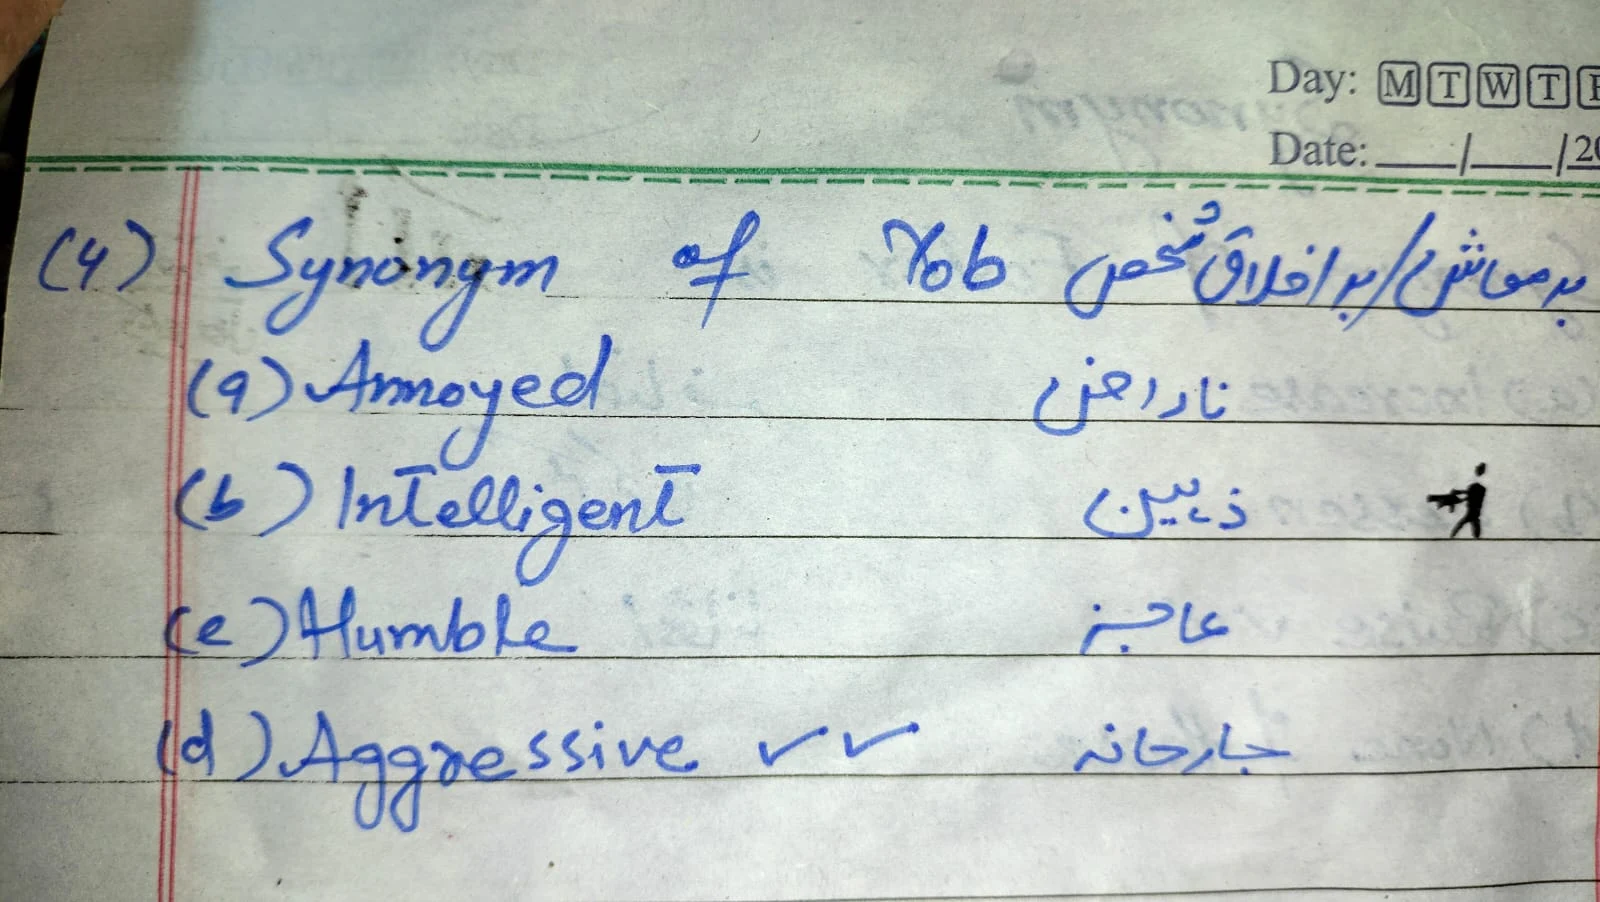 Day: M T W T F
Date: ___/___/20
(4) Synongm of Yob بدمعاش/بد اخلاق شخص
(a) Annoyed ناراض
(b) Intelligent ذہین
(c) Humble عاجز
(d) Aggressive ✓✓ جارحانہ